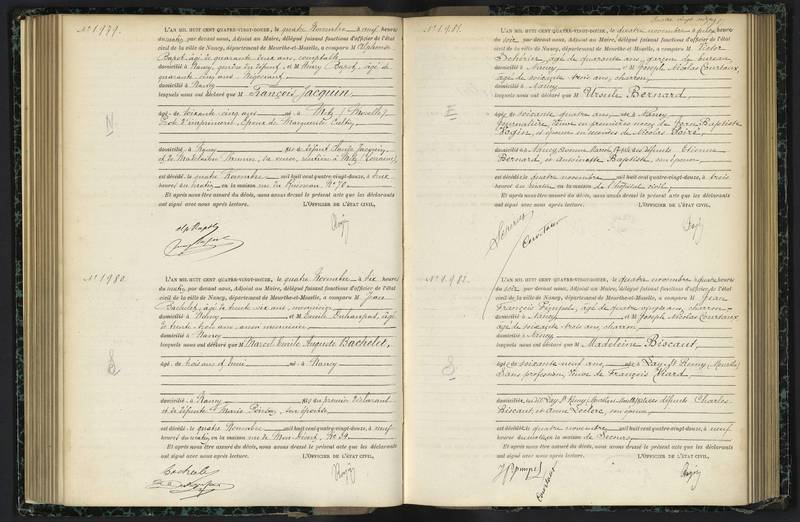 No 1979.
L'AN MIL HUIT CENT QUATRE-VINGT-DOUZE, le quatre Novembre à neuf heures
du matin, par devant nous, Adjoint au Maire, délégué faisant fonctions d'officier de l'état
civil de la ville de Nancy, département de Meurthe-et-Moselle, a comparu M Alphonse
âgé de quarante deux ans, comptable
domicilié à Nancy, du défunt et M Henry âgé de
quarante cinq ans, Négociant
domicilié à Nancy
lesquels nous ont déclaré que M François Jacquin,
âgé de soixante cinq ans né à Metz (Moselle)
Prote d'imprimerie, Epoux de Marguerite
domicilié à Nancy fils de défunt Jacquin,
et de Madeleine sa veuve, rentière à Metz (Lorraine),
est décédé le quatre Novembre mil huit cent quatre-vingt-douze, à une
heure du matin en la maison rue No 78
Et après nous être assuré du décès, nous avons dressé le présent acte que les déclarants
ont signé avec nous après lecture. L'OFFICIER DE L'ÉTAT CIVIL,
No 1980.
L'AN MIL HUIT CENT QUATRE-VINGT-DOUZE, le quatre Novembre à dix heures
du matin, par devant nous, Adjoint au Maire, délégué faisant fonctions d'officier de l'état
civil de la ville de Nancy, département de Meurthe-et-Moselle, a comparu M Jean
Bachelet, âgé de trente six ans, menuisier
domicilié à Nancy et M Emile âgé
de trente trois ans, aussi menuisier
domicilié à Nancy
lesquels nous ont déclaré que Marcel Emile Auguste Bachelet,
âgé de trois ans et demi né à Nancy
domicilié à Nancy fils du premier déclarant
et de défunte Marie son épouse,
est décédé le quatre Novembre mil huit cent quatre-vingt-douze, à neuf
heures du matin, en la maison rue de No 29
Et après nous être assuré du décès, nous avons dressé le présent acte que les déclarants
ont signé avec nous après lecture. L'OFFICIER DE L'ÉTAT CIVIL,
No 1981.
L'AN MIL HUIT CENT QUATRE-VINGT-DOUZE, le quatre novembre à heures
du soir, par devant nous, Adjoint au Maire, délégué faisant fonctions d'officier de l'état
civil de la ville de Nancy, département de Meurthe-et-Moselle, a comparu M Victor
âgé de quarante ans, garçon de bureau,
domicilié à Nancy et M Joseph Nicolas Courtaux,
âgé de soixante trois ans, charron,
domicilié à Nancy
lesquels nous ont déclaré que M Ursule Bernard
âgée de soixante quatre ans, née à Nancy
journalière, veuve en premières noces de Jean Baptiste
et épouse en secondes de Nicolas
domiciliée à Nancy, fille des défunts Etienne
Bernard et Antoinette Baptiste, son épouse,
est décédée le quatre novembre mil huit cent quatre-vingt-douze, à trois
heures du matin en la maison de l'hôpital civil,
Et après nous être assuré du décès, nous avons dressé le présent acte que les déclarants
ont signé avec nous après lecture. L'OFFICIER DE L'ÉTAT CIVIL,
Courtaux
No 1982.
L'AN MIL HUIT CENT QUATRE-VINGT-DOUZE, le quatre novembre à quatre heures
du soir, par devant nous, Adjoint au Maire, délégué faisant fonctions d'officier de l'état
civil de la ville de Nancy, département de Meurthe-et-Moselle, a comparu M Jean
François âgé de ans, charron
domicilié à Nancy et M Joseph Nicolas Courtaux
âgé de soixante trois ans, charron
domicilié à Nancy
lesquels nous ont déclaré que Madeleine Biscaut,
âgée de soixante neuf ans, née à Lay-St Remy (Meurthe)
Sans profession, Veuve de François
domiciliée à Lay-St Remy, fille des défunts Charles
Biscaut, et Anne Leclerc, son épouse,
est décédée le quatre novembre mil huit cent quatre-vingt-douze, à neuf
heures du matin en la maison de Secours,
Et après nous être assuré du décès, nous avons dressé le présent acte que les déclarants
ont signé avec nous après lecture. L'OFFICIER DE L'ÉTAT CIVIL,
Courtaux